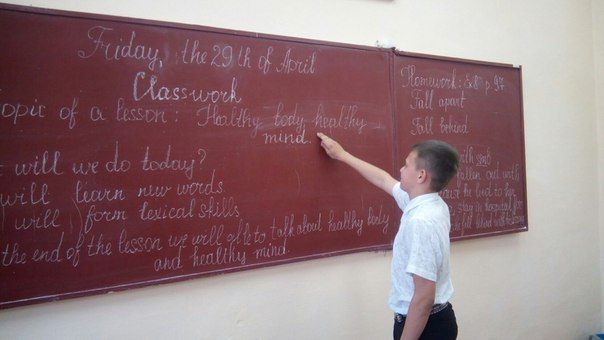 Friday, the 29th of April
Classwork
opic of a lesson: Healthy body healthy
mind.
will we do today?
will learn new words
will form lexical skills
the end of the lesson we will able to talk about healthy body
and healthy mind
Homework: p. 97
Fall apart
Fall behind
with smb
fallen out with